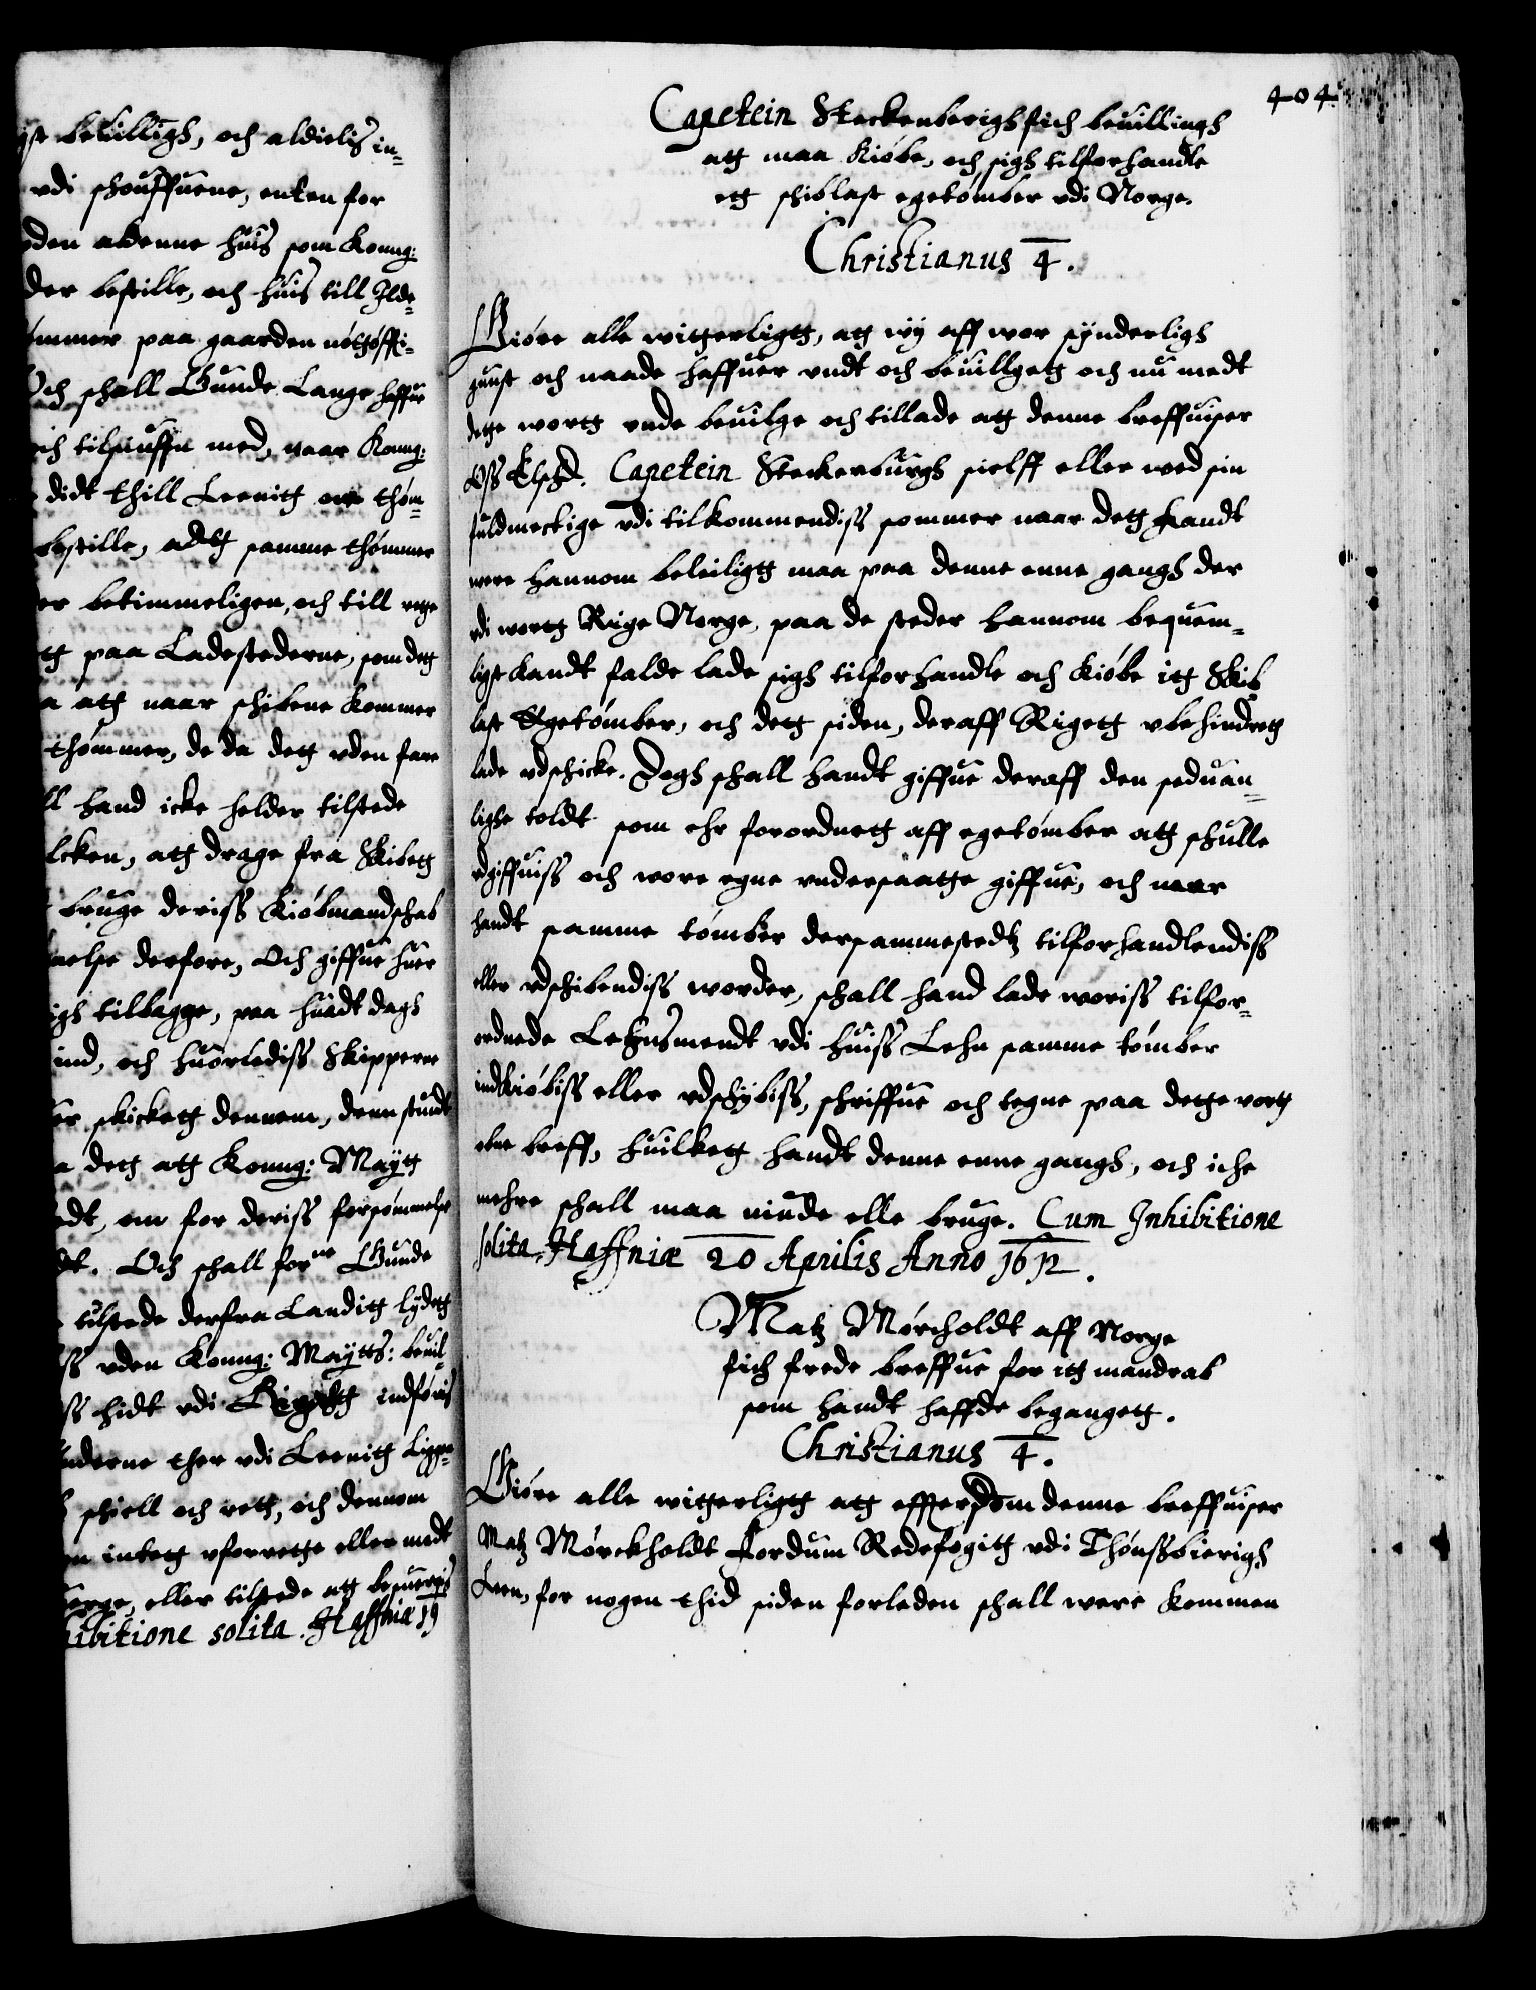 bevilligh, och aldielis in-
vdi schouffuene, enten for
den adenne huis som Konng:
der bestille, och huis till Ilde-
ømmer paa gaarden nøttøffti-
Och schall Gunde Lange haffue
tilsiuffn med, naar Konng:
didt thill Leenitt thøm-
bestille, adtt samme thømmer
er betimmeligen, och till rette
tt paa Ladestederne, som dett
a att naar schibene kommer
thømmer, de da dett vden fare
ll hand icke helder tilstede
lcken, att drage fra Skibett
bruge deriss Kiøbmandschab
derfore, Och giffue huer
igh tilbagge, paa huadt dagh
ind, och huorlediss Skipperne
er skickett dennem, denn stundt
a dett att Konng: Maytt
edt, om for deriss forsømmelse
dt. Och schall forne Gunde
tilstede derfra Landitt lydett
ss vden Konng: Maytts: bevil-
ss hidt vdi Rigett indføris
nderne ther vdi Leenitt Ligge-
schiell och rett, och dennom
en intett vforrette eller medt
uerge, eller tilstede att besueris
hibitione solita. Haffniæ 19
404
Capetein Steckenberigh fich bevillingh
att maa kiøbe, och sigh tilforhandle
ett schiblast egetømber vdi Norge.
Christianus 4.
Giøre alle witterligtt, att wy aff wor synderligh
gunst och naade haffuer vndt och bevillgett och nu medt
dette wortt vnde bevilge och tillade att denne breffuiser
Oss Elschd. Capetein Steckerburgh sielff eller wed sin
fuldmectige vdi tilkommendiss sommer naar dett kandt
were hannom beleiligtt maa paa denne enne gangh der
vdi wortt Rige Norge, paa de steder hannom bequem-
ligst kandt falde lade sigh tilforhandle och kiøbe itt Skib
last Egetømber, och dett siden, deraff Rigett vbehindrett
lade vdschicke. Dogh schall handt giffue deraff den seduan-
lighe toldt som ehr forordnett aff egetømber att schulle
vdgiffuiss och wore egne vndersaatte giffue, och naar
handt samme tømber dersammestedtz tilforhandlendiss
eller vdschibendiss worder, schall hand lade woriss tilfor-
ordnede Lehnsmendt vdi huiss Lehn samme tømber
indkiøbiss eller vdschybiss, schriffue och tegne paa dette vortt
obne breff, huilkett handt denne enne gangh, och iche
mehre schall maa niude elle bruge. Cum Inhibitione
solita. Haffniæ 20 Aprilis Anno 1612.
Matz Mørcholdt aff Norge
fich frede breffue for itt mandrab
som handt haffde begangett.
Christianus 4.
Giøre alle witterligtt att effterdom denne breffuiser
Matz Mørckholdt fordum Redefogitt vdi Thønssbierigh
Leen, for nogen thid siden forleden schall were kommen